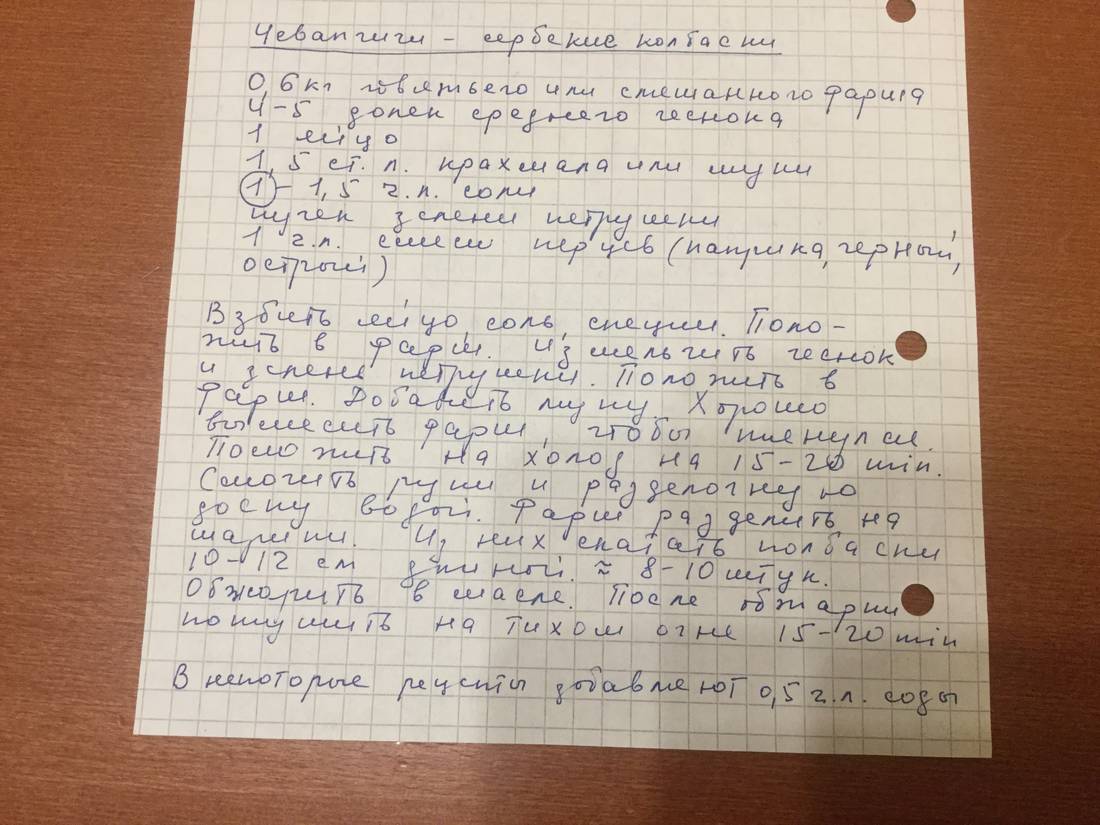 Чевапчичи – сербские колбаски
0,6 кг говяжьего или смешанного фарша
4–5 долек среднего чеснока
1 яйцо
1,5 ст. л. крахмала или муки
1 – 1,5 ч.л. соли
пучек зелени петрушки
1 ч.л. смеси перцев (паприка, черный,
острый)
Взбить яйцо, соль, специи. Поло-
жить в фарш. Измельчить чеснок
и зелень петрушки. Положить в
фарш. Добавить муку. Хорошо
вымесить фарш, чтобы тянулся.
Положить на холод на 15–20 min.
Смочить руки и разделочную
доску водой. Фарш разделить на
шарики. Из них скатать колбаски
10–12 см длиной. ≈ 8–10 штук.
Обжарить в масле. После обжарки
потушить на тихом огне 15–20 min
В некоторые рецепты добавляют 0,5 ч.л. соды